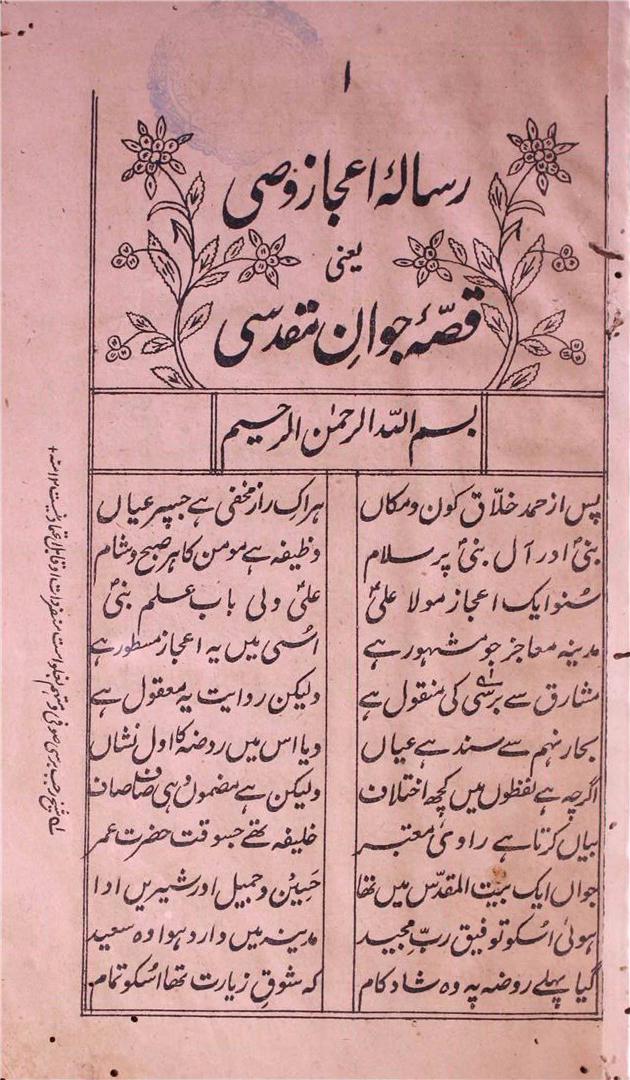 ۱
رسالۂ اعجاز وصی
یعنی
قصّۂ جوانِ مقدسی
بسم اللہ الرحمٰن الرحیم
پس از حمد خلّاق کون و مکاں ہر اک راز مخفی ہے جسپر عیاں
نبیؐ اور آل نبیؐ پر سلام وظیفہ ہے مومن کا ہر صبح و شام
سُنو ایک اعجاز مولا علیؑ علیؑ ولی باب علم نبیؐ
مدینہ معاجز جو مشہور ہے اُسی میں یہ اعجاز مسطور ہے
مشارق سے برسی کی منقول ہے ولیکن روایت یہ معقول ہے
بحار نہم سے سند ہے عیاں دیا اس میں روضہ کا اول نشاں
اگرچہ ہے لفظوں میں کچھ اختلاف ولیکن ہے مضموں وہی صاف صاف
بیاں کرتا ہے راویٔ معتبر خلیفہ تھے جسوقت حضرت عمر
جواں ایک بیت المقدّس میں تھا حَسِین و جمیل اور شیریں ادا
ہوئی اُسکو توفیق ربِّ مجید مدینہ میں وارد ہوا وہ سعید
گیا پہلے روضہ پہ وہ شاد کام کہ شوقِ زیارت تھا اُسکو تمام
لہ شیخ رجب برسی صوفی و متہم بغلو است